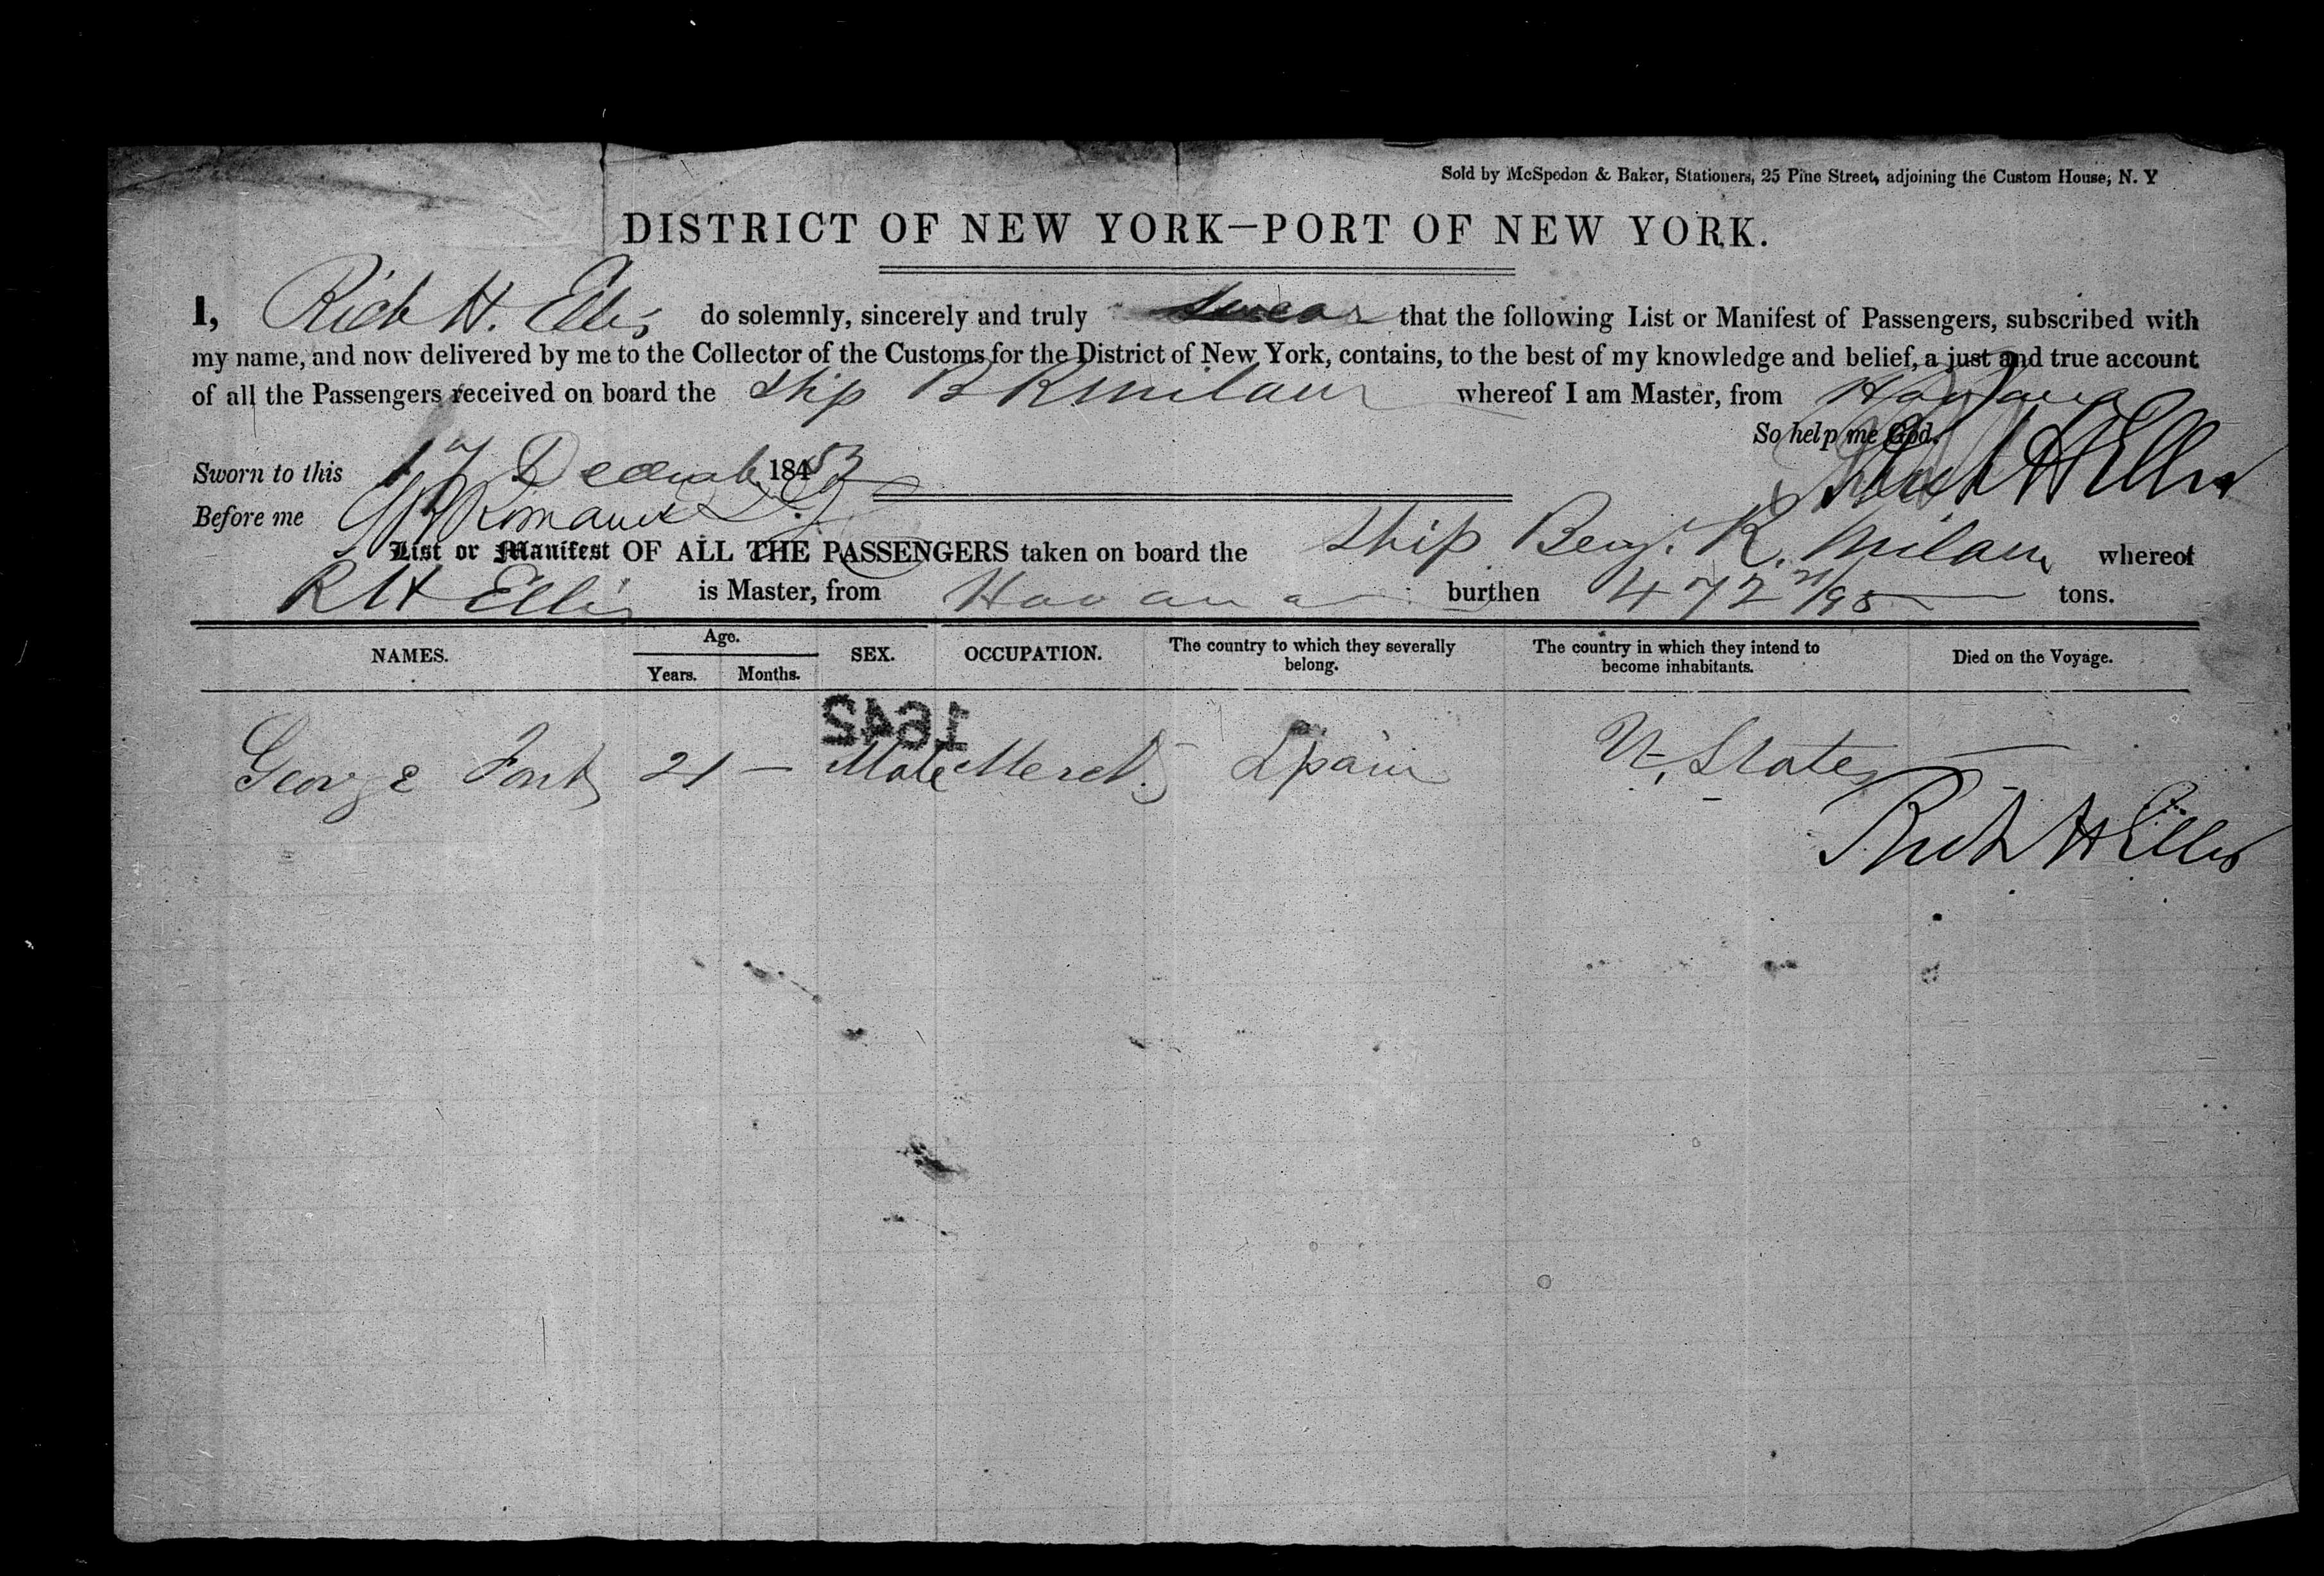 Sold by McSpedon & Baker, Stationers, 25 Pine Street, adjoining the Custom House, N. Y
DISTRICT OF NEW YORK—PORT OF NEW YORK.
I, Rich H. Ellis do solemnly, sincerely and truly swear that the following List or Manifest of Passengers, subscribed with
my name, and now delivered by me to the Collector of the Customs for the District of New York, contains, to the best of my knowledge and belief, a just and true account
of all the Passengers received on board the Ship B R Milam whereof I am Master, from Havana
So help me God.
Rich H Ellis
Sworn to this 17 Decemb 1853
Before me
List or Manifest OF ALL THE PASSENGERS taken on board the Ship Benj. R. Milam whereof
R H Ellis is Master, from Havana burthen 472 /95 tons.
NAMES. Age. Years. Months. SEX. OCCUPATION. The country to which they severally belong. The country in which they intend to become inhabitants. Died on the Voyage.
1642
George 21 — Male Merch. Spain U. States —
Rich H Ellis